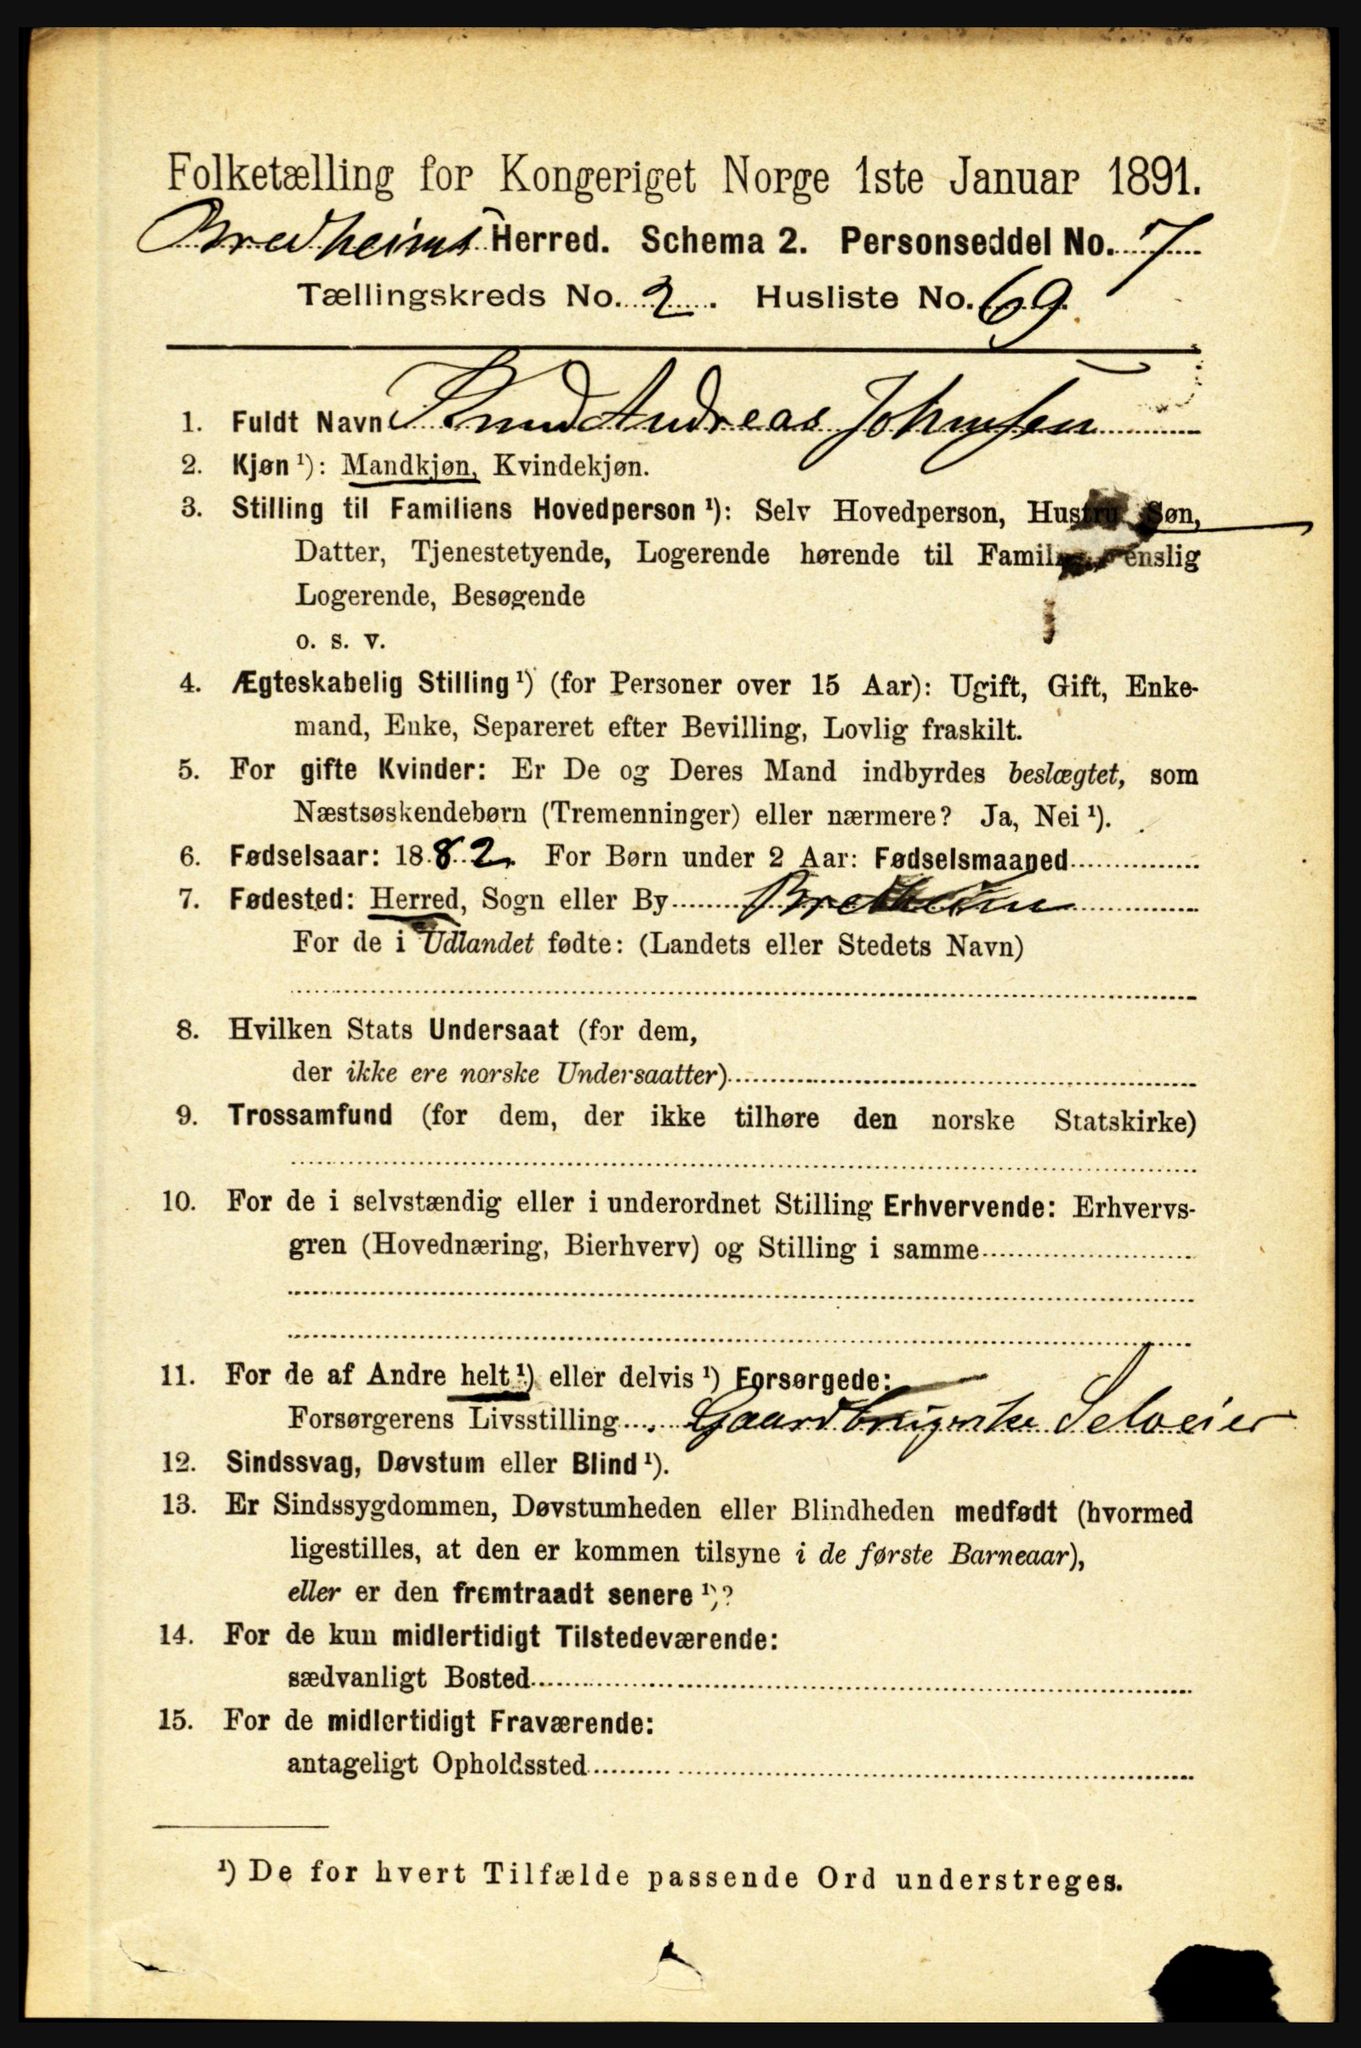 Folketælling for Kongeriget Norge 1ste Januar 1891.
Bredheims Herred. Schema 2. Personseddel No. 7
Tællingskreds No. 2. Husliste No. 69.
1. Fuldt Navn Knud Andreas Johnsen
2. Kjøn¹): Mandkjøn, Kvindekjøn.
3. Stilling til Familiens Hovedperson¹): Selv Hovedperson, Hustru, Søn,
Datter, Tjenestetyende, Logerende hørende til Familien, enslig
Logerende, Besøgende
o. s. v.
4. Ægteskabelig Stilling¹) (for Personer over 15 Aar): Ugift, Gift, Enke-
mand, Enke, Separeret efter Bevilling, Lovlig fraskilt.
5. For gifte Kvinder: Er De og Deres Mand indbyrdes beslægtet, som
Næstsøskendebørn (Tremenninger) eller nærmere? Ja, Nei¹).
6. Fødselsaar: 1882 For Børn under 2 Aar: Fødselsmaaned
7. Fødested: Herred, Sogn eller By Bretheim
For de i Udlandet fødte: (Landets eller Stedets Navn)
8. Hvilken Stats Undersaat (for dem,
der ikke ere norske Undersaatter)
9. Trossamfund (for dem, der ikke tilhøre den norske Statskirke)
10. For de i selvstændig eller i underordnet Stilling Erhvervende: Erhvervs-
gren (Hovednæring, Bierhverv) og Stilling i samme
11. For de af Andre helt¹) eller delvis¹) Forsørgede:
Forsørgerens Livsstilling Gaardbruger Selveier
12. Sindssvag, Døvstum eller Blind¹).
13. Er Sindssygdommen, Døvstumheden eller Blindheden medfødt (hvormed
ligestilles, at den er kommen tilsyne i de første Barneaar),
eller er den fremtraadt senere¹)?
14. For de kun midlertidigt Tilstedeværende:
sædvanligt Bosted
15. For de midlertidigt Fraværende:
antageligt Opholdssted
¹) De for hvert Tilfælde passende Ord understreges.